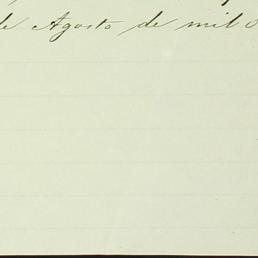 de Agosto de mil